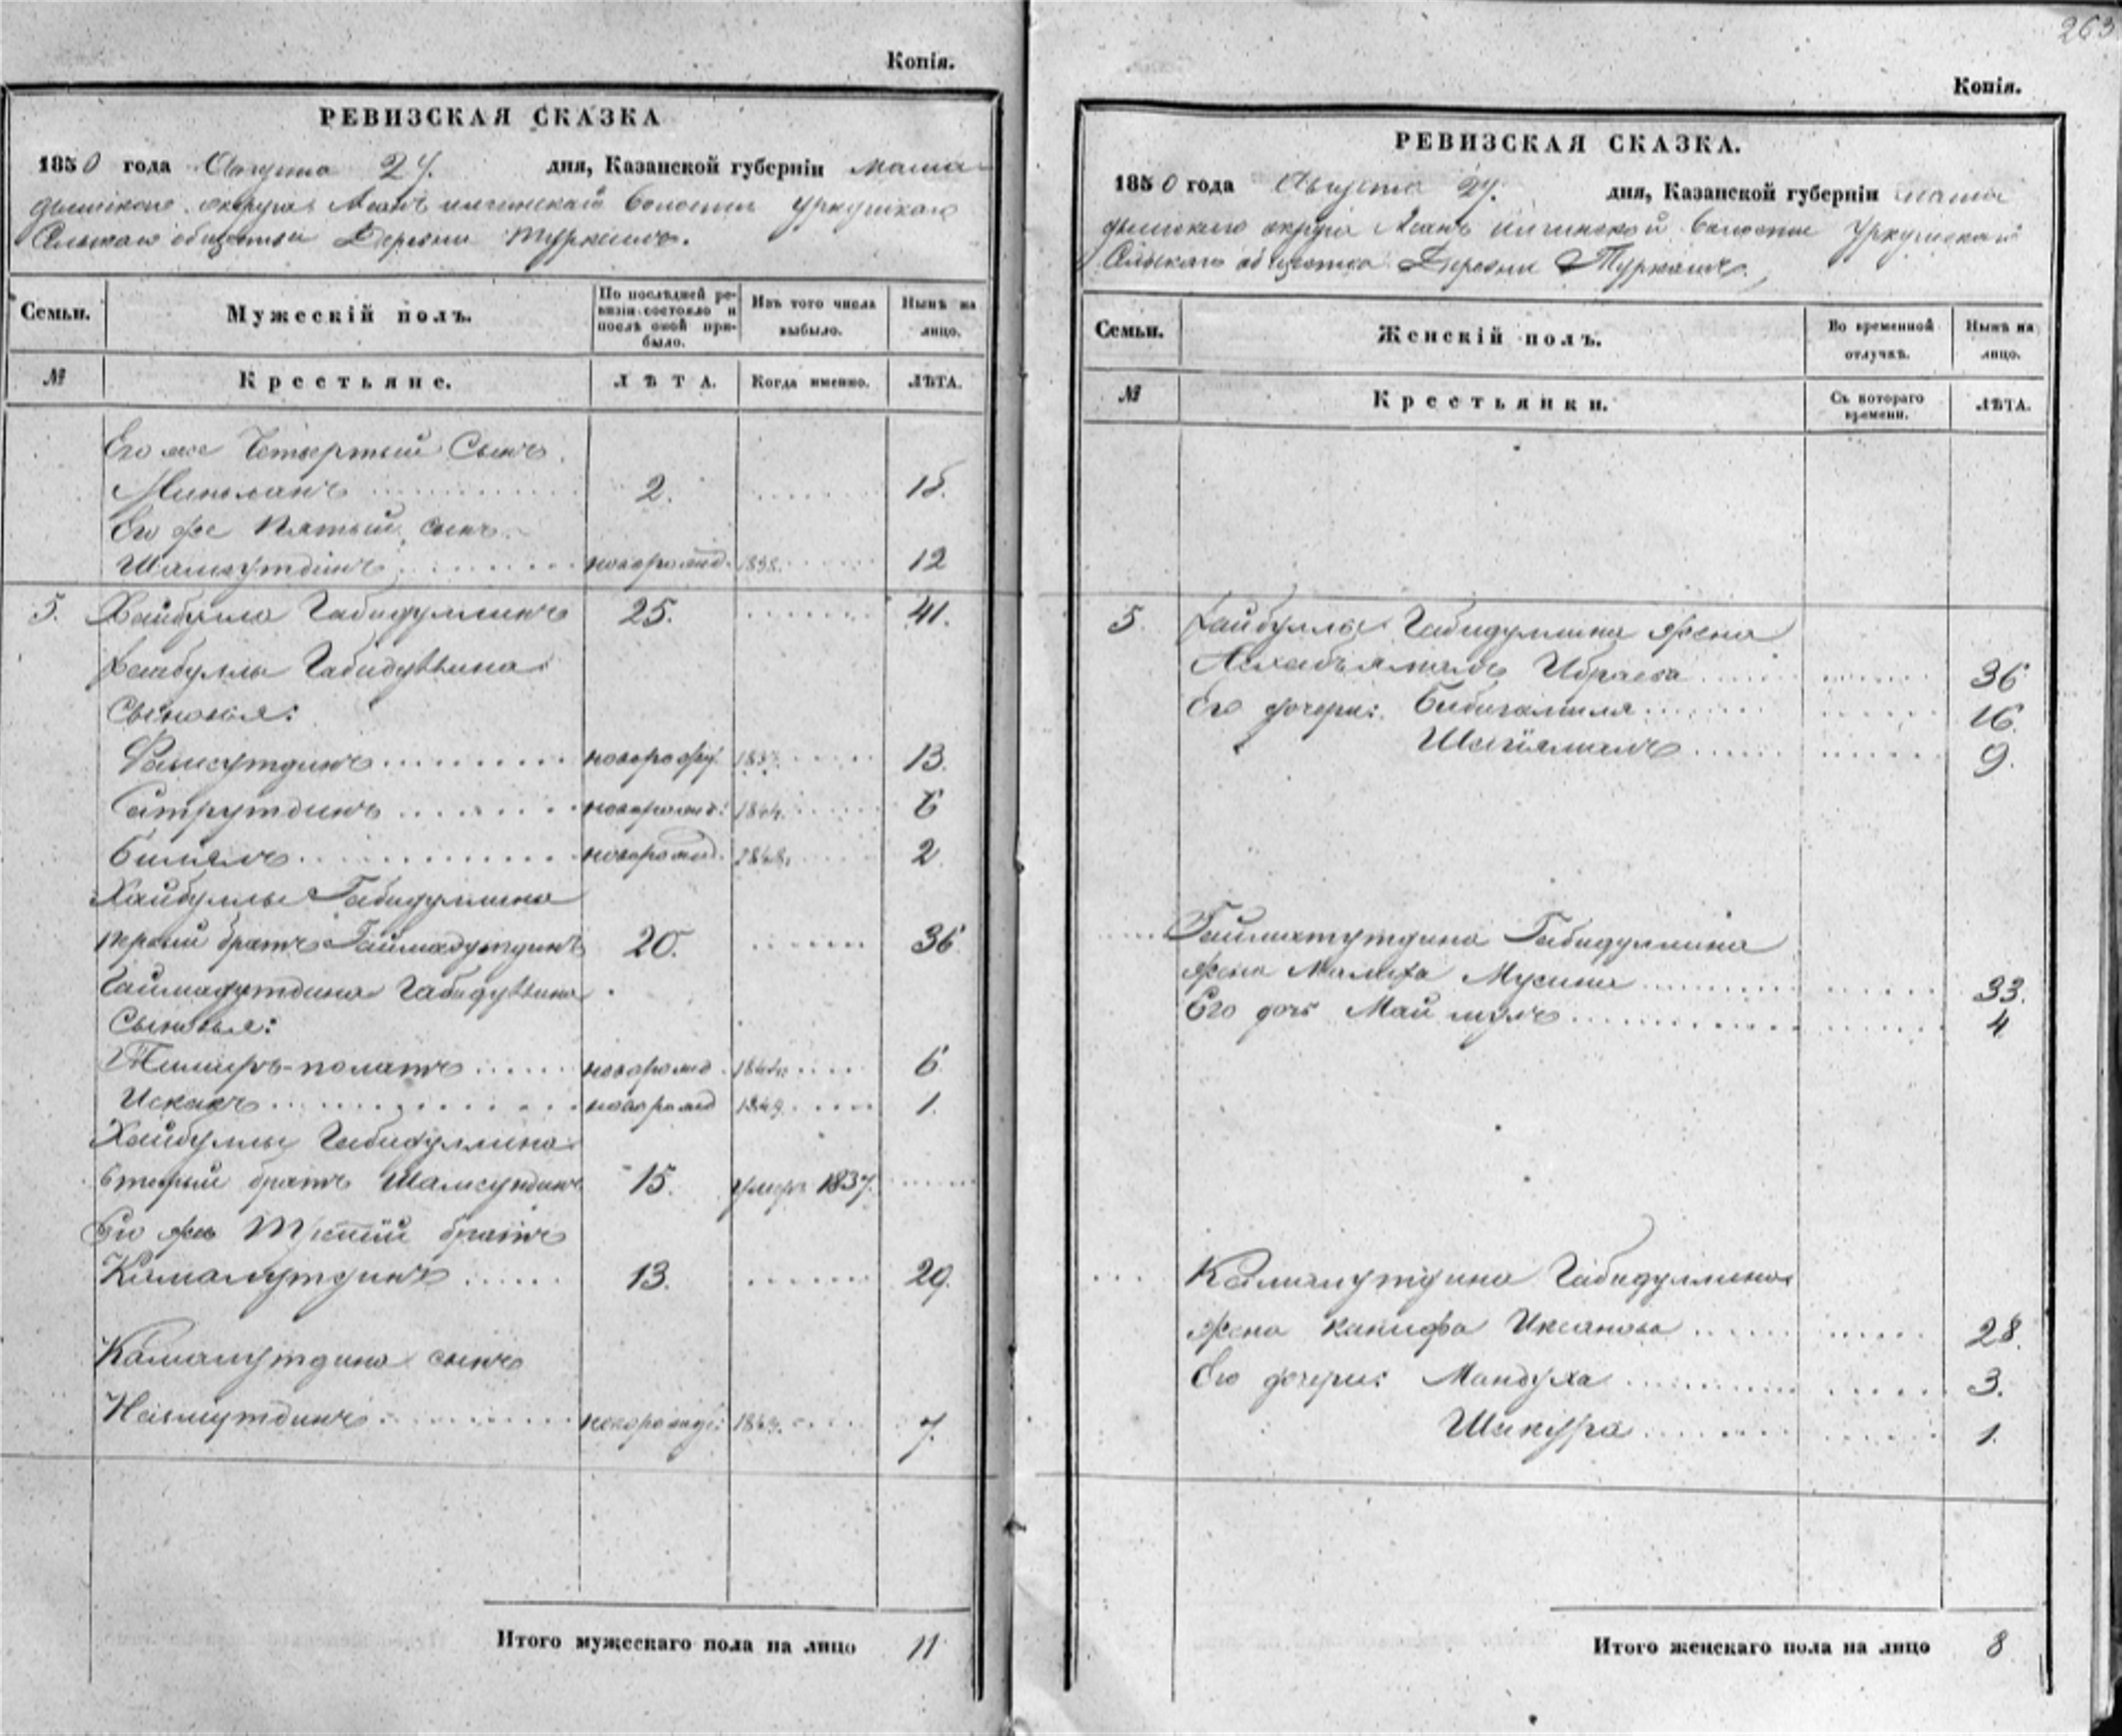 Копія.
РЕВИЗСКАЯ СКАЗКА
1850 года Августа 27. дня, Казанской губерніи мама
дышскаго округа волости Уркушскаго
Сельскаго общества Деревни Туркашъ.
Семьи.
Мужескій полъ.
По послѣдней ре-
визіи состояло и
послѣ оной при-
было.
Изъ того числа
выбыло.
Нынѣ на
лицо.
№
Крестьяне.
ЛѢТА.
Когда именно.
ЛѢТА.
Его же Четвертый Сынъ
2. 18.
Его же Пятый сынъ
Шамсутдинъ новорожд. 1838. 12
5. Хайбулла Габидуллинъ 25. 41.
Хайбуллы Габидуллина
Сыновья:
новорожд. 1837. 13.
Сатрутдинъ новорожд. 1844. 6
Билялъ новорожд. 1848. 2
Хайбуллы Габидуллина
первый братъ Гаймадутдинъ 20. 36
Гаймадутдина Габидуллина
Сыновья:
Тимиръ-полатъ новорожд. 1844. 6
Искакъ новорожд 1849. 1.
Хайбуллы Габидуллина
вторый братъ Шамсутдинъ 15. умеръ 1837.
Его же Третій братъ
Камалутдинъ 13. 29.
Камалутдина сынъ
новорожд: 1843. 7.
Итого мужескаго пола на лицо 11
263
Копія.
РЕВИЗСКАЯ СКАЗКА.
1850 года Августа 27. дня, Казанской губерніи мама
дышскаго округа волости Уркушскаго
Сельскаго общества Деревни Туркашъ.
Семьи.
Женскій полъ.
Во временной
отлучкѣ.
Нынѣ на
лицо.
№
Крестьянки.
Съ котораго
времени.
ЛѢТА.
5. Хайбуллы Габидуллина жена
Ибраева 36
Его дочери: Бибигамиля 16.
9.
Гайматутдина Габидуллина
жена Малифа Мусина 33.
Его дочь Маймулъ 4
Камалутдина Габидуллина
жена Ханифа Иксанова 28.
Его дочери: Мандуха 3.
Шакура 1.
Итого женскаго пола на лицо 8